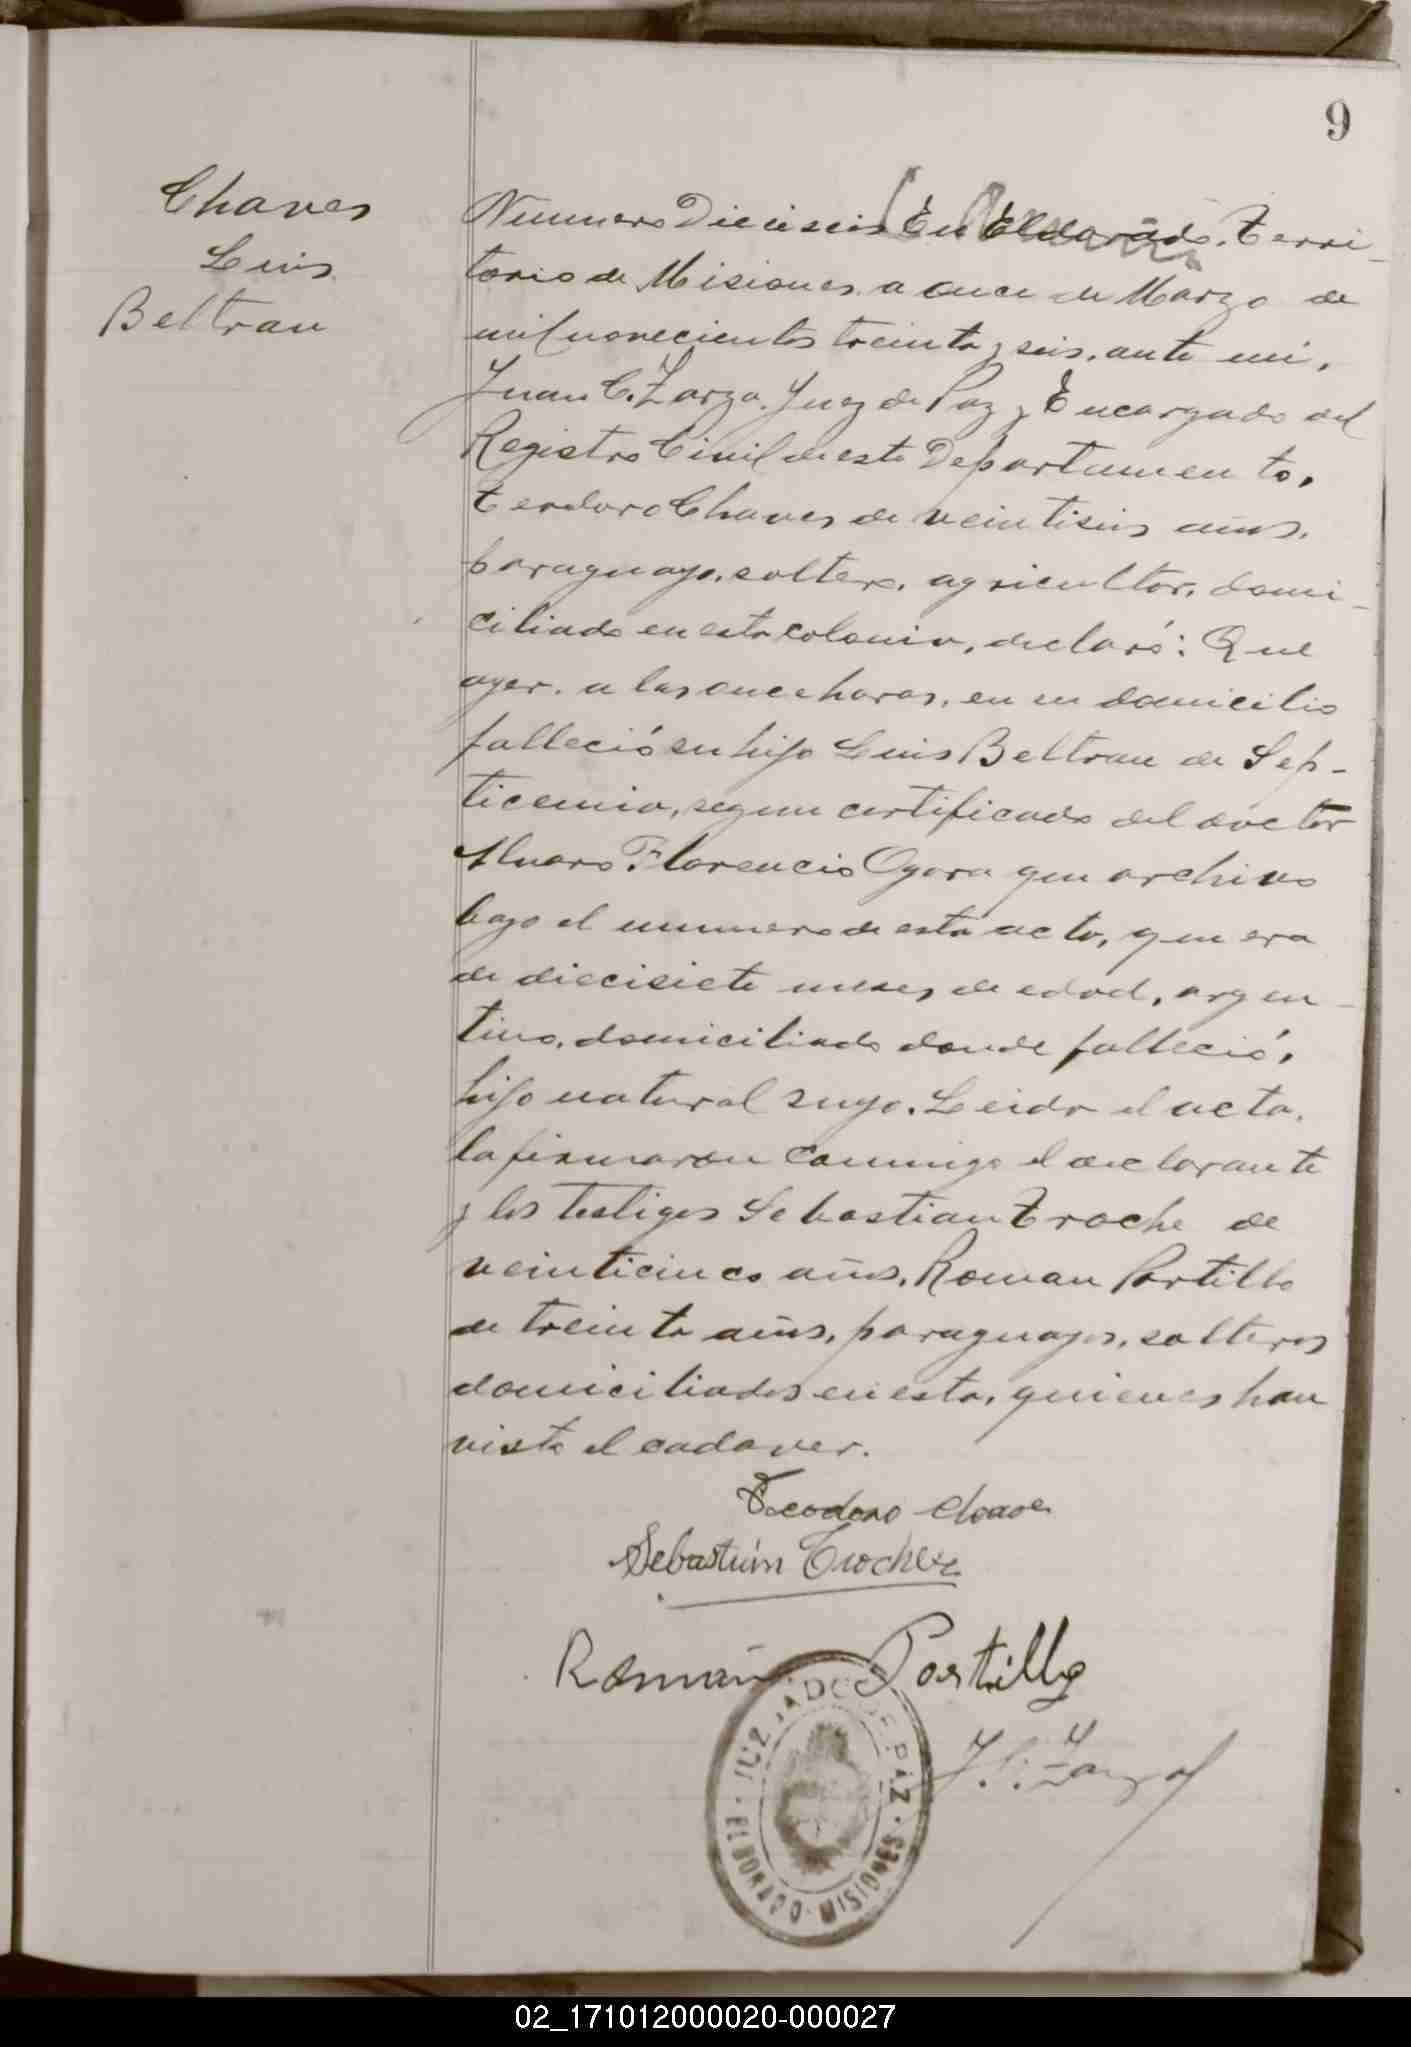 9
Chaves
Luis
Beltran
Numero Dieciseis En Eldorado. Terri-
torio de Misiones a once de Marzo de
mil novecientos treinta y seis, ante mi,
Juan C. Zarza. Juez de Paz y Encargado del
Registro Civil de este Departamento,
Teodoro Chaves de veintiseis años,
paraguayo, soltero, agricultor, domi-
ciliado en esta colonia, declaró: Que
ayer a las once horas, en su domicilio
falleció su hijo Luis Beltran de Sep-
ticemia, segun certificado del doctor
Alvaro Florencio Ogara que archivo
bajo el numero de esta acta, que era
de diecisiete meses de edad, argen-
tino, domiciliado donde falleció,
hijo natural suyo. Leida el acta,
la firmaron conmigo el declarante
y los testigos Sebastian Troche de
veinticinco años, Roman Portillo
de treinta años, paraguayos, solteros
domiciliados en esta, quienes han
visto el cadaver.
Teodoro Chaves
Sebastián Troche
Román Portillo
J. C. Zarza
JUZGADO DE PAZ
ELDORADO - MISIONES
02_171012000020-000027